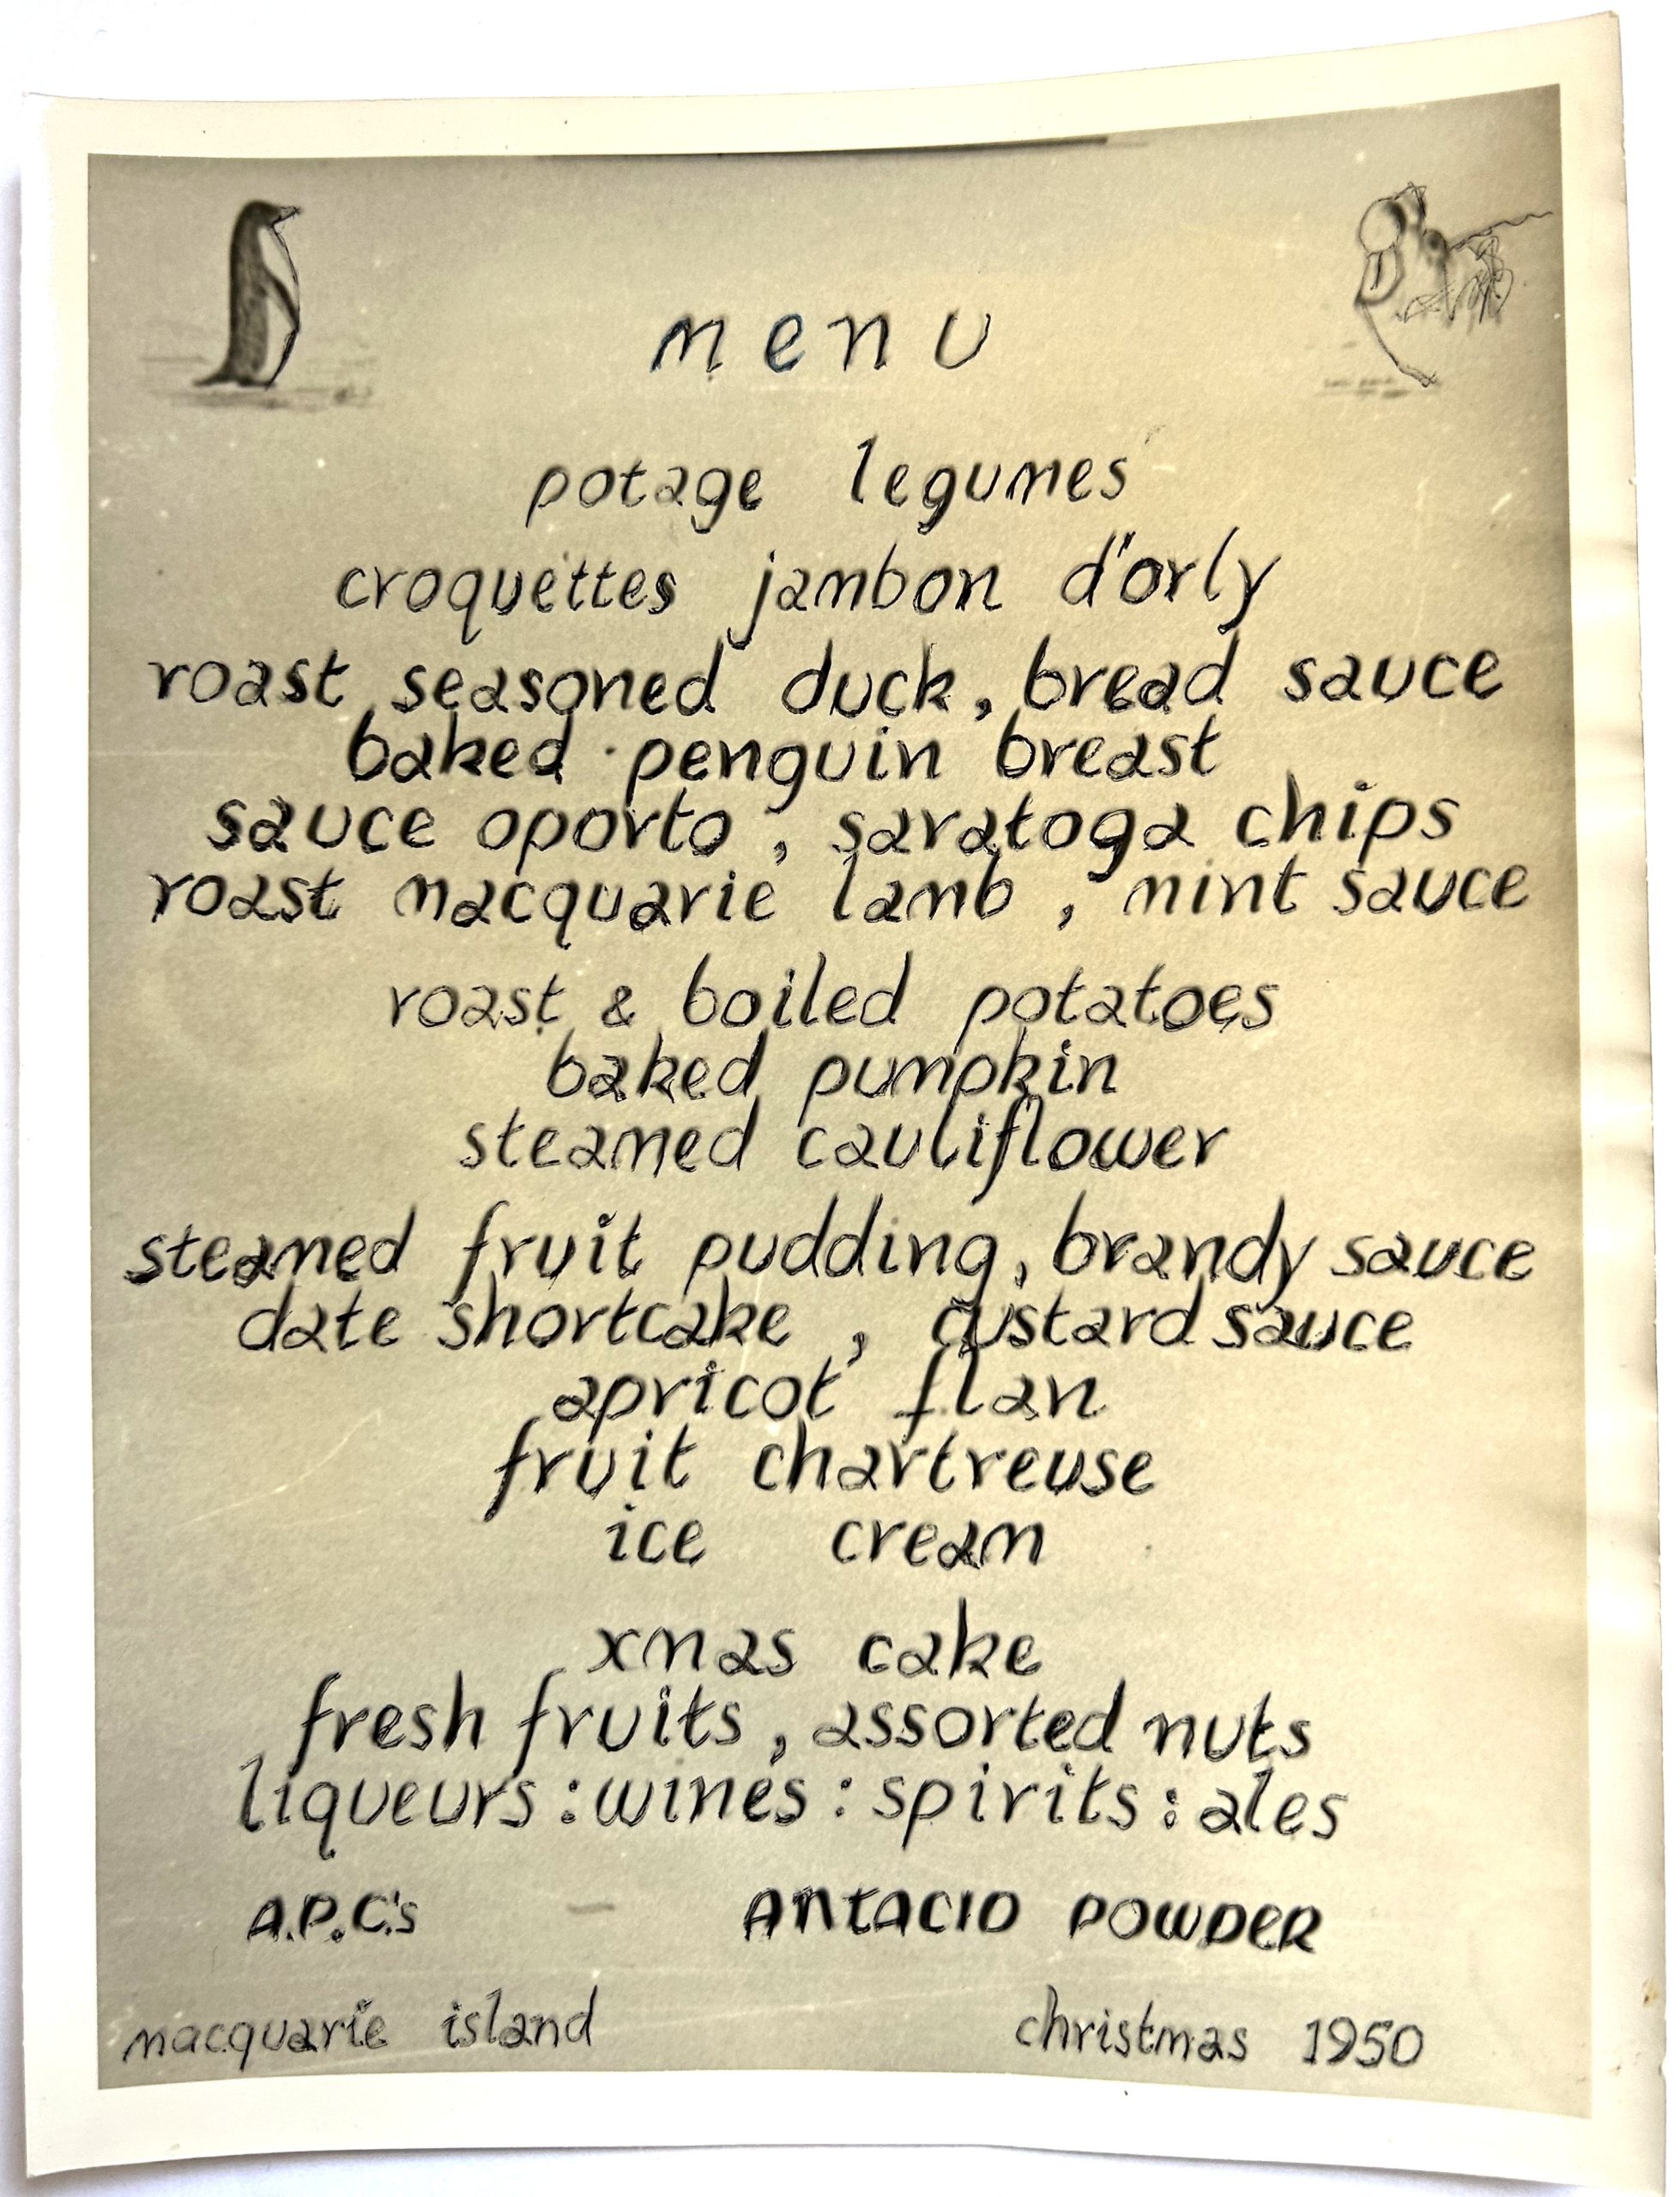 menu
potage legumes
croquettes jambon d'orly
roast seasoned duck, bread sauce
baked penguin breast
sauce oporto, saratoga chips
roast macquarie lamb, mint sauce
roast & boiled potatoes
baked pumpkin
steamed cauliflower
steamed fruit pudding, brandy sauce
date shortcake, custard sauce
apricot flan
fruit chartreuse
ice cream
xmas cake
fresh fruits, assorted nuts
liqueurs : wines : spirits : ales
A.P.C's - ANTACID POWDER
macquarie island christmas 1950